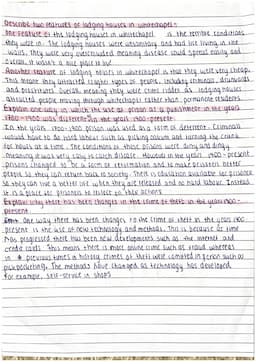 Describe two features of lodging houses in whitechapel -
One feature of the lodging houses in whitechapel is the terrible conditions
they were in. The lodging houses were unsanitary and had lice living in the
walls. They were very overcrowded meaning disease could spread easily and
overall, it wasn't a nice place to live.
Another feature of lodging houses in whitechapel is that they were very cheap.
This meant they attracted rougher types of people, including criminals, drunkards
and prostitutes. Overall meaning they were crime ridden as lodging houses
attracted people moving through whitechapel rather than permanent residents.
Explain one way in which the use of prison as a punishment in the years
1700-1900 was different in the years 1900-present.
In the years 1700-1900 prison was used as a form of deterrence. Criminals
would have to do hard labour such as picking oakum and turning the crank
for hours at a time. The conditions of these prisons were dirty and dingy
meaning it was very easy to catch disease. However in the years 1900-present
prisons changed to be a form of rehabilitation and to make prisoners better
people so they can return back to society. There is education available for prisoners
so they can live a better life when they are released and no hard labour. Instead
it is a place for prisoners to reflect on their actions.
Explain why there has been changes in the crime of theft in the years 1900-
present
One way there has been changes to the crime of theft in the years 1900-
present is the use of new technology and methods. This is because as time
has progressed there has been new developments such as the internet and
credit cards. This means there is more online crime such as fraud whereas
in previous times a majority crimes of theft were comitted in person such as
pickpocketing. The methods have changed as technology has developed
for example, self-service in shops